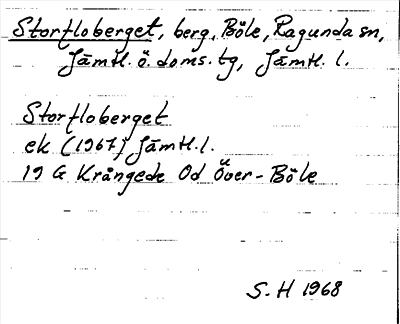 Storfloberget, berg, Böle, Ragunda sn,
Jämtl. ö. doms. tg, Jämtl. l.
Storfloberget
ek (1967) Jämtl. l.
19 G Krångede Od Över-Böle
S. H 1968